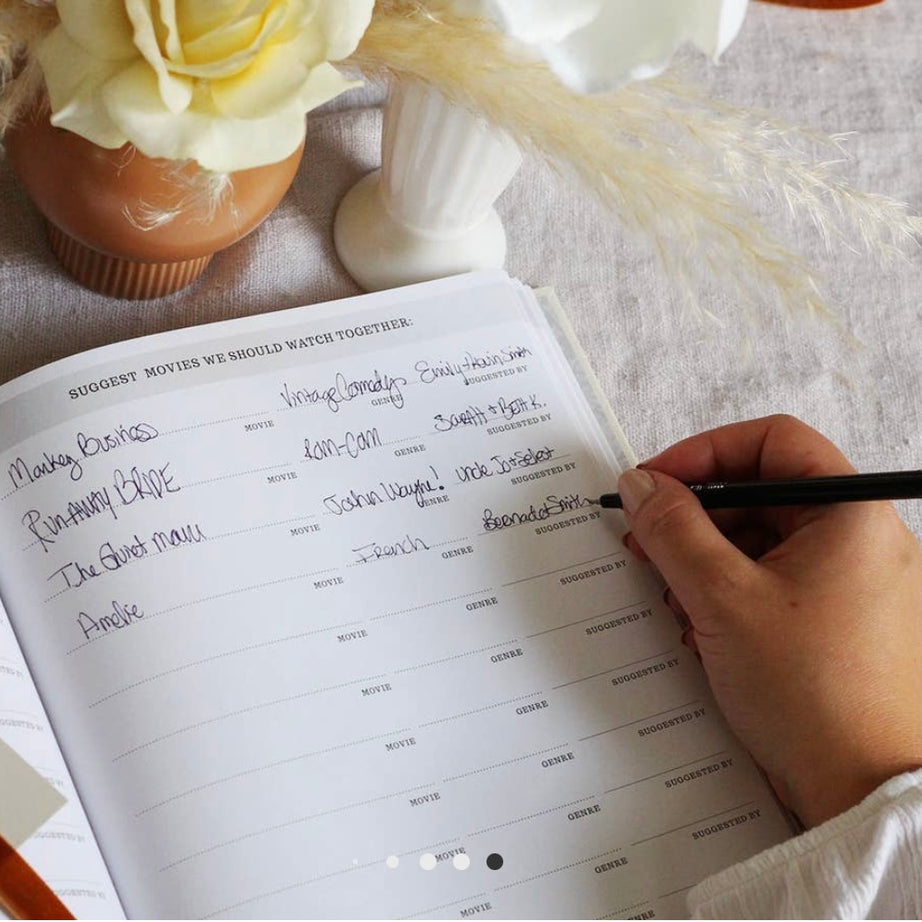 SUGGEST MOVIES WE SHOULD WATCH TOGETHER:
Monkey Business Vintage Comedy Emily + Kevin Smith
MOVIE GENRE SUGGESTED BY
RUNAWAY BRIDE ROM-COM SARAH + BETH K.
MOVIE GENRE SUGGESTED BY
The Quiet Man John Wayne! Uncle Jo +
MOVIE GENRE SUGGESTED BY
Amelie French Bernadet Smith
MOVIE GENRE SUGGESTED BY
MOVIE GENRE SUGGESTED BY
MOVIE GENRE SUGGESTED BY
MOVIE GENRE SUGGESTED BY
MOVIE GENRE SUGGESTED BY
MOVIE GENRE SUGGESTED BY
MOVIE GENRE SUGGESTED BY
SUGGESTED BY
SUGGESTED BY